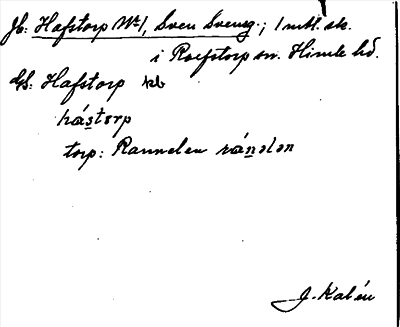 Jb: Hafstorp No 1, Sven Svensg.; 1 mtl. sk.
i Rofstorp sn. Himle hd.
Gb: Hafstorp kb
hástorp
torp: Rannelen ránələn
J. Kalén